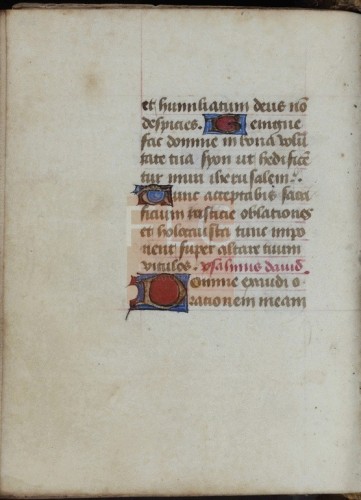 et humiliatum deus nō
despicies. Beningne
fac domine in bona volū
tate tua syon ut hedificē
tur muri iherusalem.
Tunc acceptabis sacri
ficium iusticie oblationes
et holocausta tunc impo
nent super altare tuum
vitulos. psalmus david.
Domine exaudi o
rationem meam